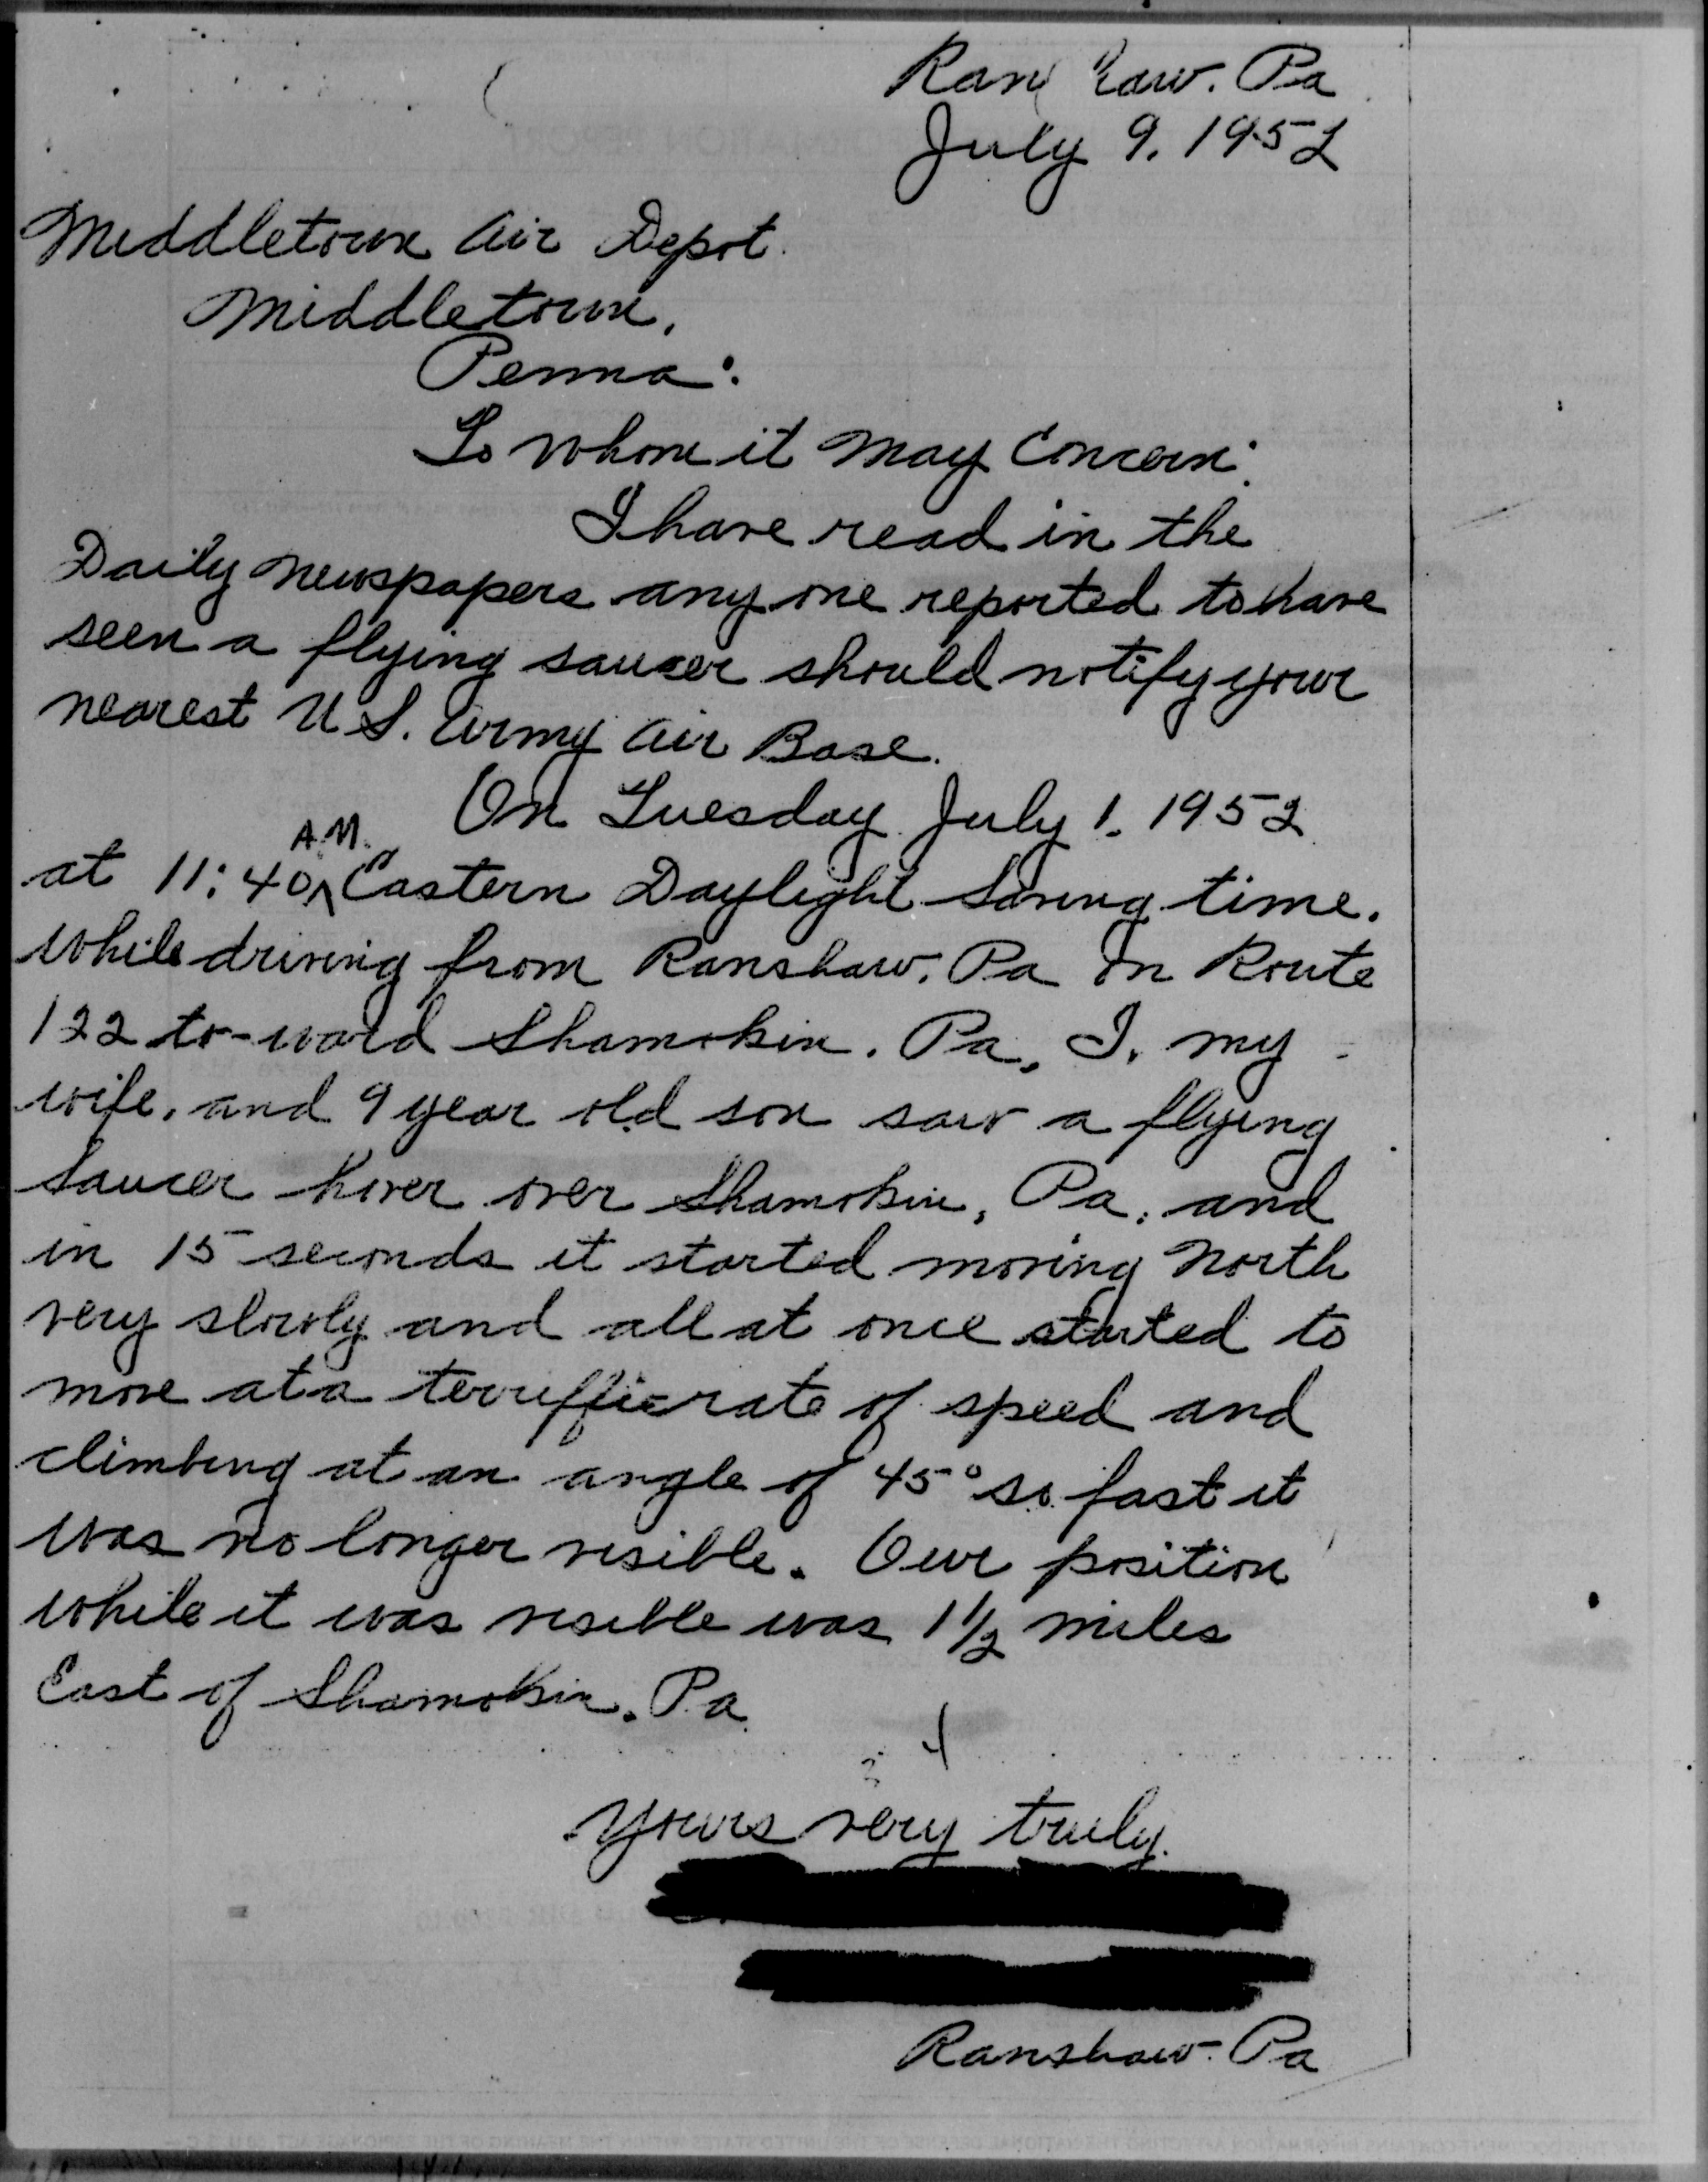 Ranshaw. Pa
July 9, 1952
Middletown Air Depot.
Middletown,
Penna:
To whom it May Concern:
I have read in the
Daily newspapers any one reported to have
seen a flying saucer should notify your
nearest U.S. Army Air Base.
On Tuesday July 1. 1952
at 11:40 A.M. Eastern Daylight Saving time.
while driving from Ranshaw, Pa on Route
122 to-ward Shamokin. Pa, I, my
wife, and 9 year old son saw a flying
saucer hover over Shamokin, Pa. and
in 15 seconds it started moving North
very slowly and all at once started to
move at a terriffic rate of speed and
climbing at an angle of 45° so fast it
was no longer visible. Our position
while it was visible was 1 1/2 miles
East of Shamokin. Pa.
Yours very truly.
Ranshaw. Pa